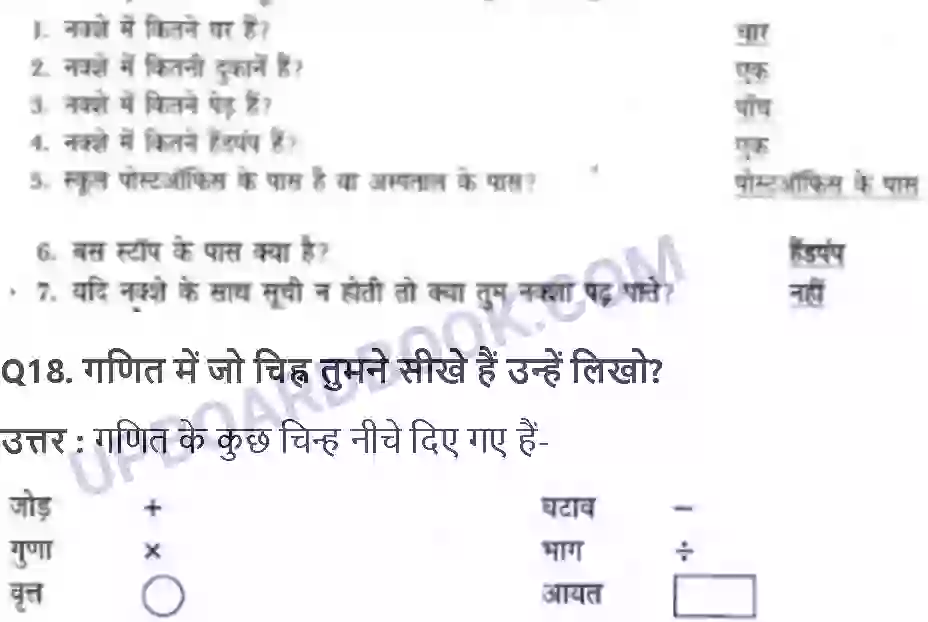 1. नक्शे में कितने घर हैं? चार
2. नक्शे में कितनी दुकानें हैं? एक
3. नक्शे में कितने पेड़ हैं? पाँच
4. नक्शे में कितने हैंडपंप हैं? एक
5. स्कूल पोस्टऑफिस के पास है या अस्पताल के पास? पोस्टऑफिस के पास
6. बस स्टॉप के पास क्या है? हैंडपंप
7. यदि नक्शे के साथ सूची न होती तो क्या तुम नक्शा पढ़ पाते? नहीं
Q18. गणित में जो चिह्न तुमने सीखे हैं उन्हें लिखो?
उत्तर : गणित के कुछ चिन्ह नीचे दिए गए हैं-
जोड़ + घटाव −
गुणा × भाग ÷
वृत्त आयत
UPBOARDBOOK.COM